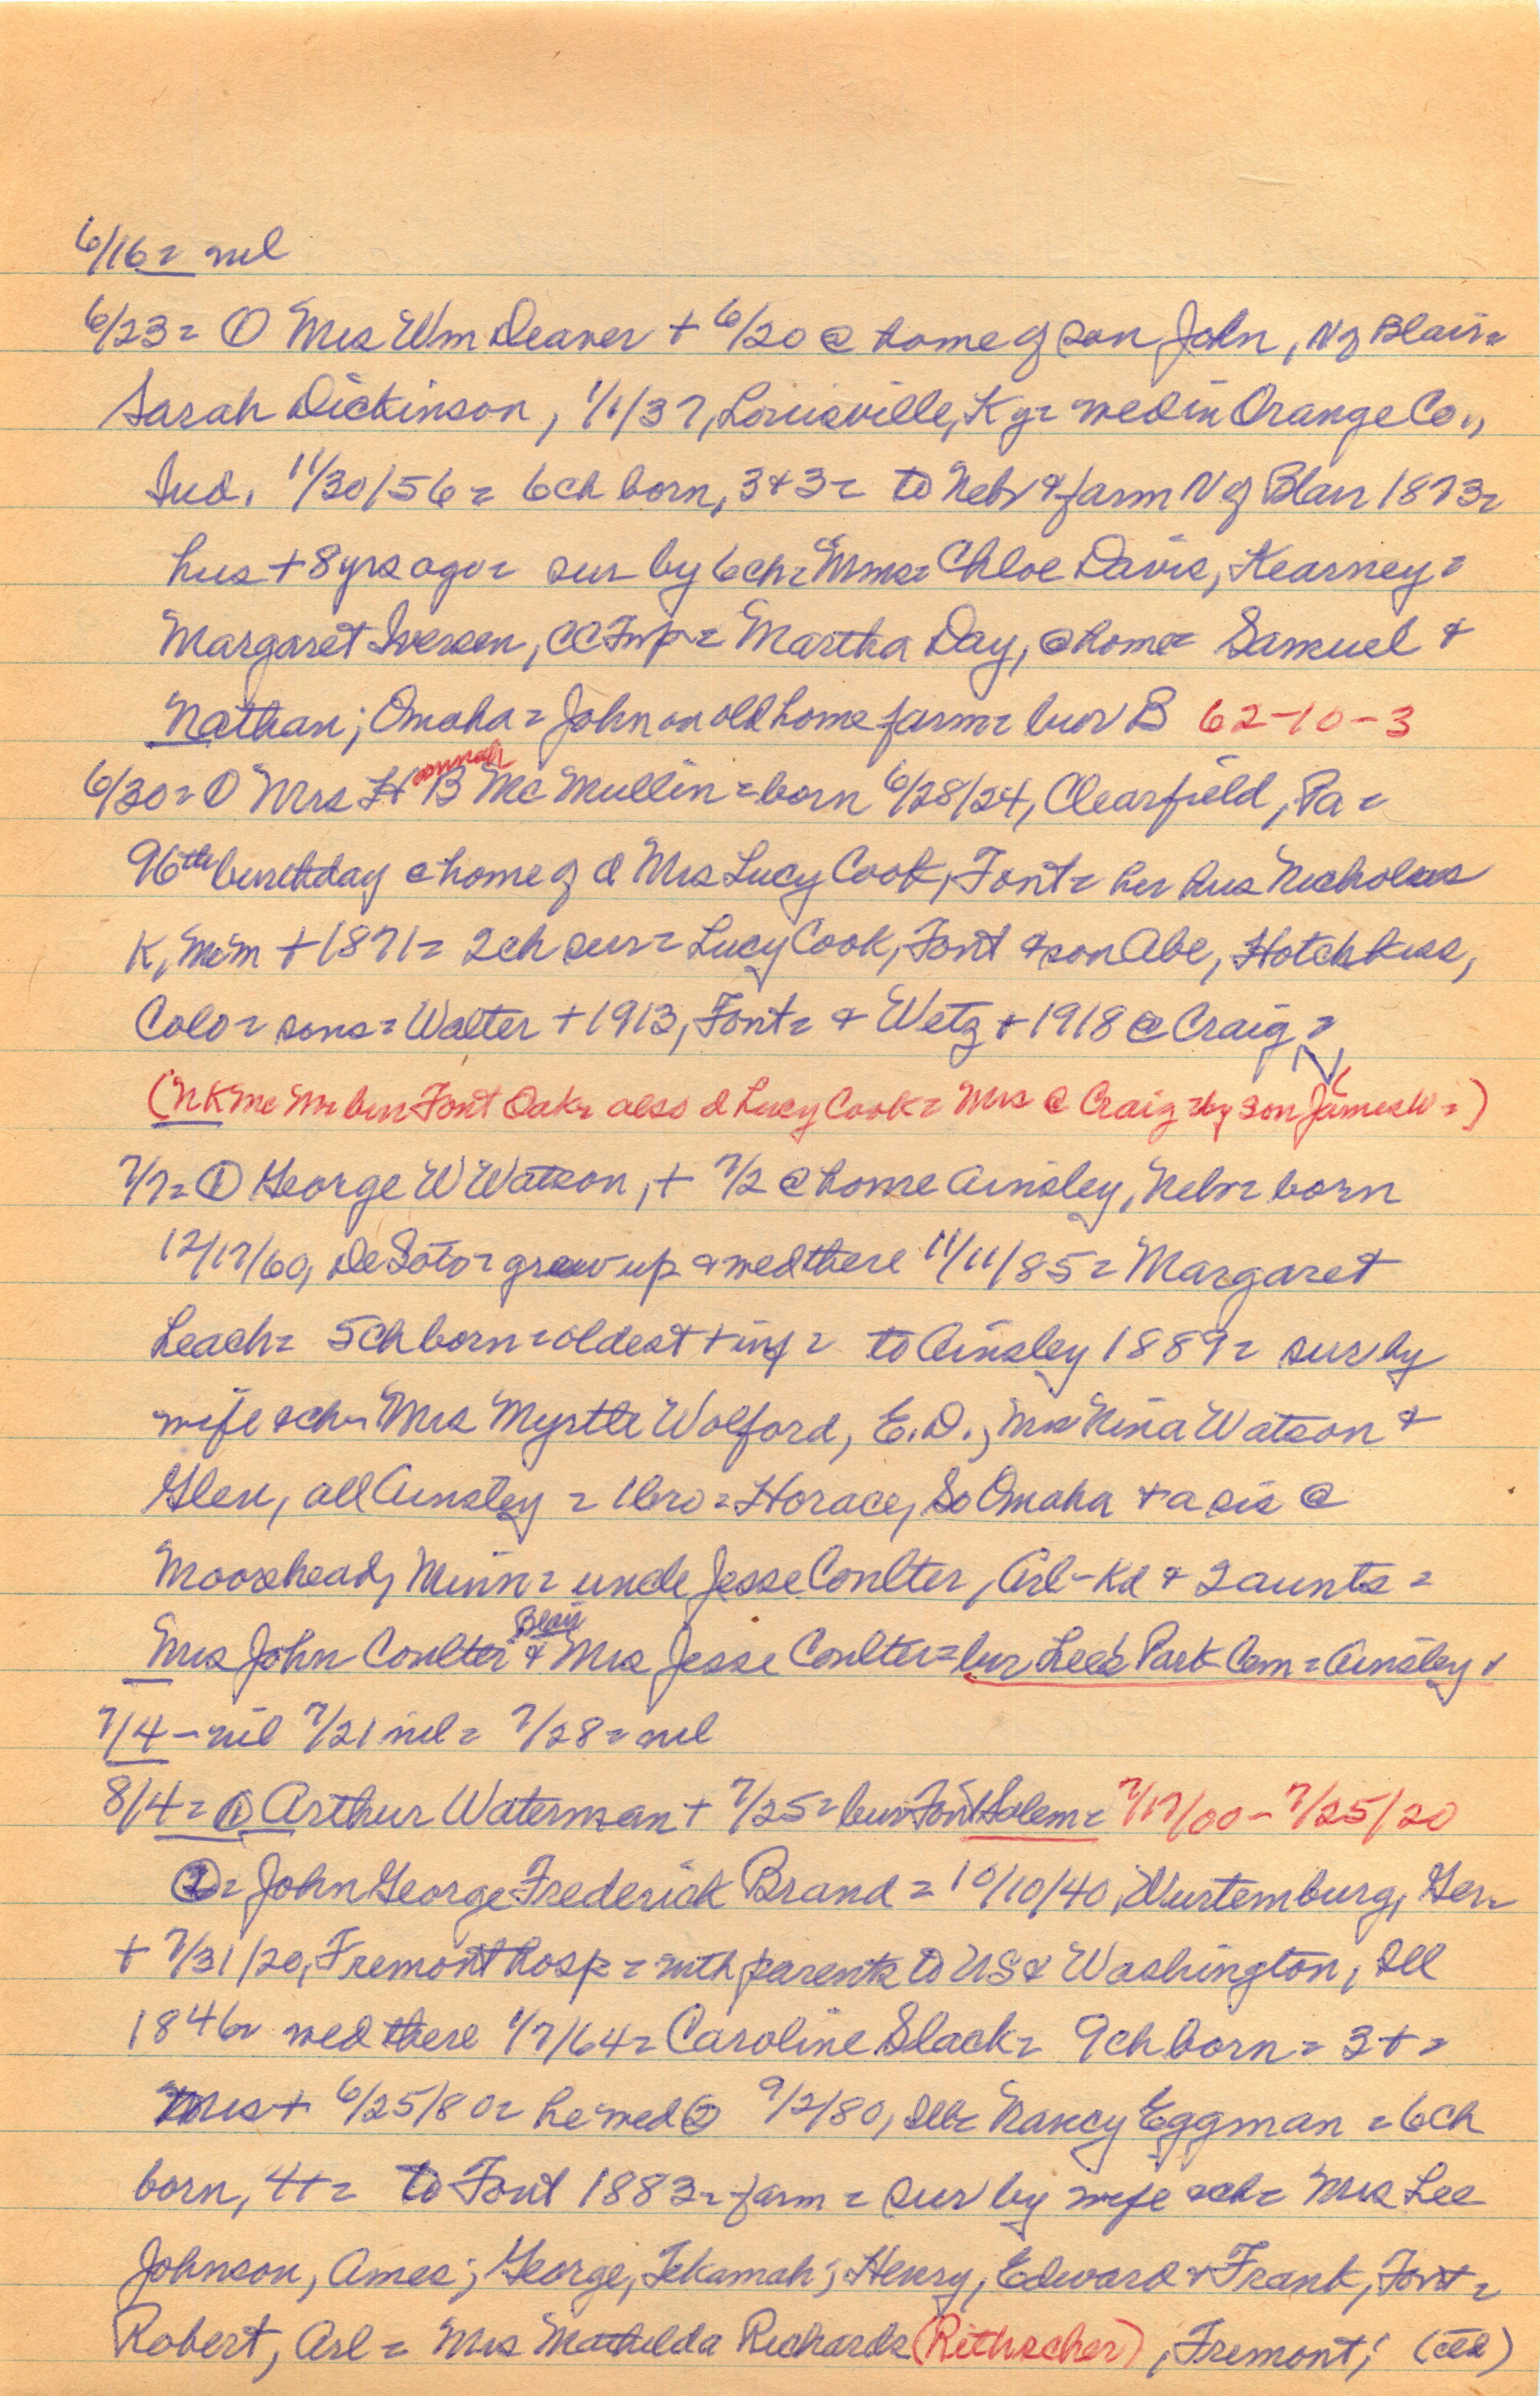 6/16= nil
6/23= ① Mrs Wm Deaver + 6/20 @ home of son John, N of Blair=
Sarah Dickinson, 1/1/37, Louisville, Ky= wed in Orange Co.,
Ind. 11/30/56= 6ch born, 3&3= to Nebr & farm N of Blair 1873=
hus + 8 yrs ago= sur by 6ch= Mmes= Chloe Davis, Kearney=
Margaret Iversen, CC Twp= Martha Day, @ home= Samuel &
Nathan; Omaha= John on old home farm= bur B 62-10-3
6/30= ① Mrs Hannah B McMullin= born 6/28/24, Clearfield, Pa=
96th birthday @ home of d Mrs Lucy Cook, Font= her hus Nicholas
K, McM + 1871= 2ch sur= Lucy Cook, Font & son Abe, Hotchkiss,
Colo= sons= Walter + 1913, Font= & Wetz + 1918 @ Craig=
(NK Mc M= bur Font Oak= also d Lucy Cook= Mrs @ Craig= by son James W=)
7/7= ① George W Watson, + 7/2 @ home Ainsley, Nebr= born
12/17/60, DeSoto= grew up & wed there 11/11/85= Margaret
Leach= 5ch born= oldest + inf= to Ainsley 1889= sur by
wife & ch= Mrs Myrtle Wolford, E.D., Mrs Nina Watson &
Glen, all Ainsley= 1 bro= Horace, So Omaha & a sis @
Moosehead, Minn= uncle Jesse Coulter, Arl-Kd & 2 aunts=
Mrs John Coulter Blair & Mrs Jesse Coulter= bur Lee's Park Cem= Ainsley
7/4- nil 7/21 nil= 7/28= nil
8/4= ① Arthur Waterman + 7/25= bur Font Salem= 7/17/00- 7/25/20
②= John George Frederick Brand= 10/10/40, Wurtemburg, Ger=
+ 7/31/20, Fremont hosp= with parents to US & Washington, Ill
1846= wed there 1/7/64= Caroline Slack= 9ch born= 3+=
Mrs + 6/25/80= he wed ② 9/2/80, Ill= Nancy Eggman= 6ch
born, 4+= to Font 1883= farm= sur by wife & ch= Mrs Lee
Johnson, Ames; George, Tekamah; Henry, Edward & Frank, Font=
Robert, Arl= Mrs Mathilda Richards (Rithscher), Fremont;